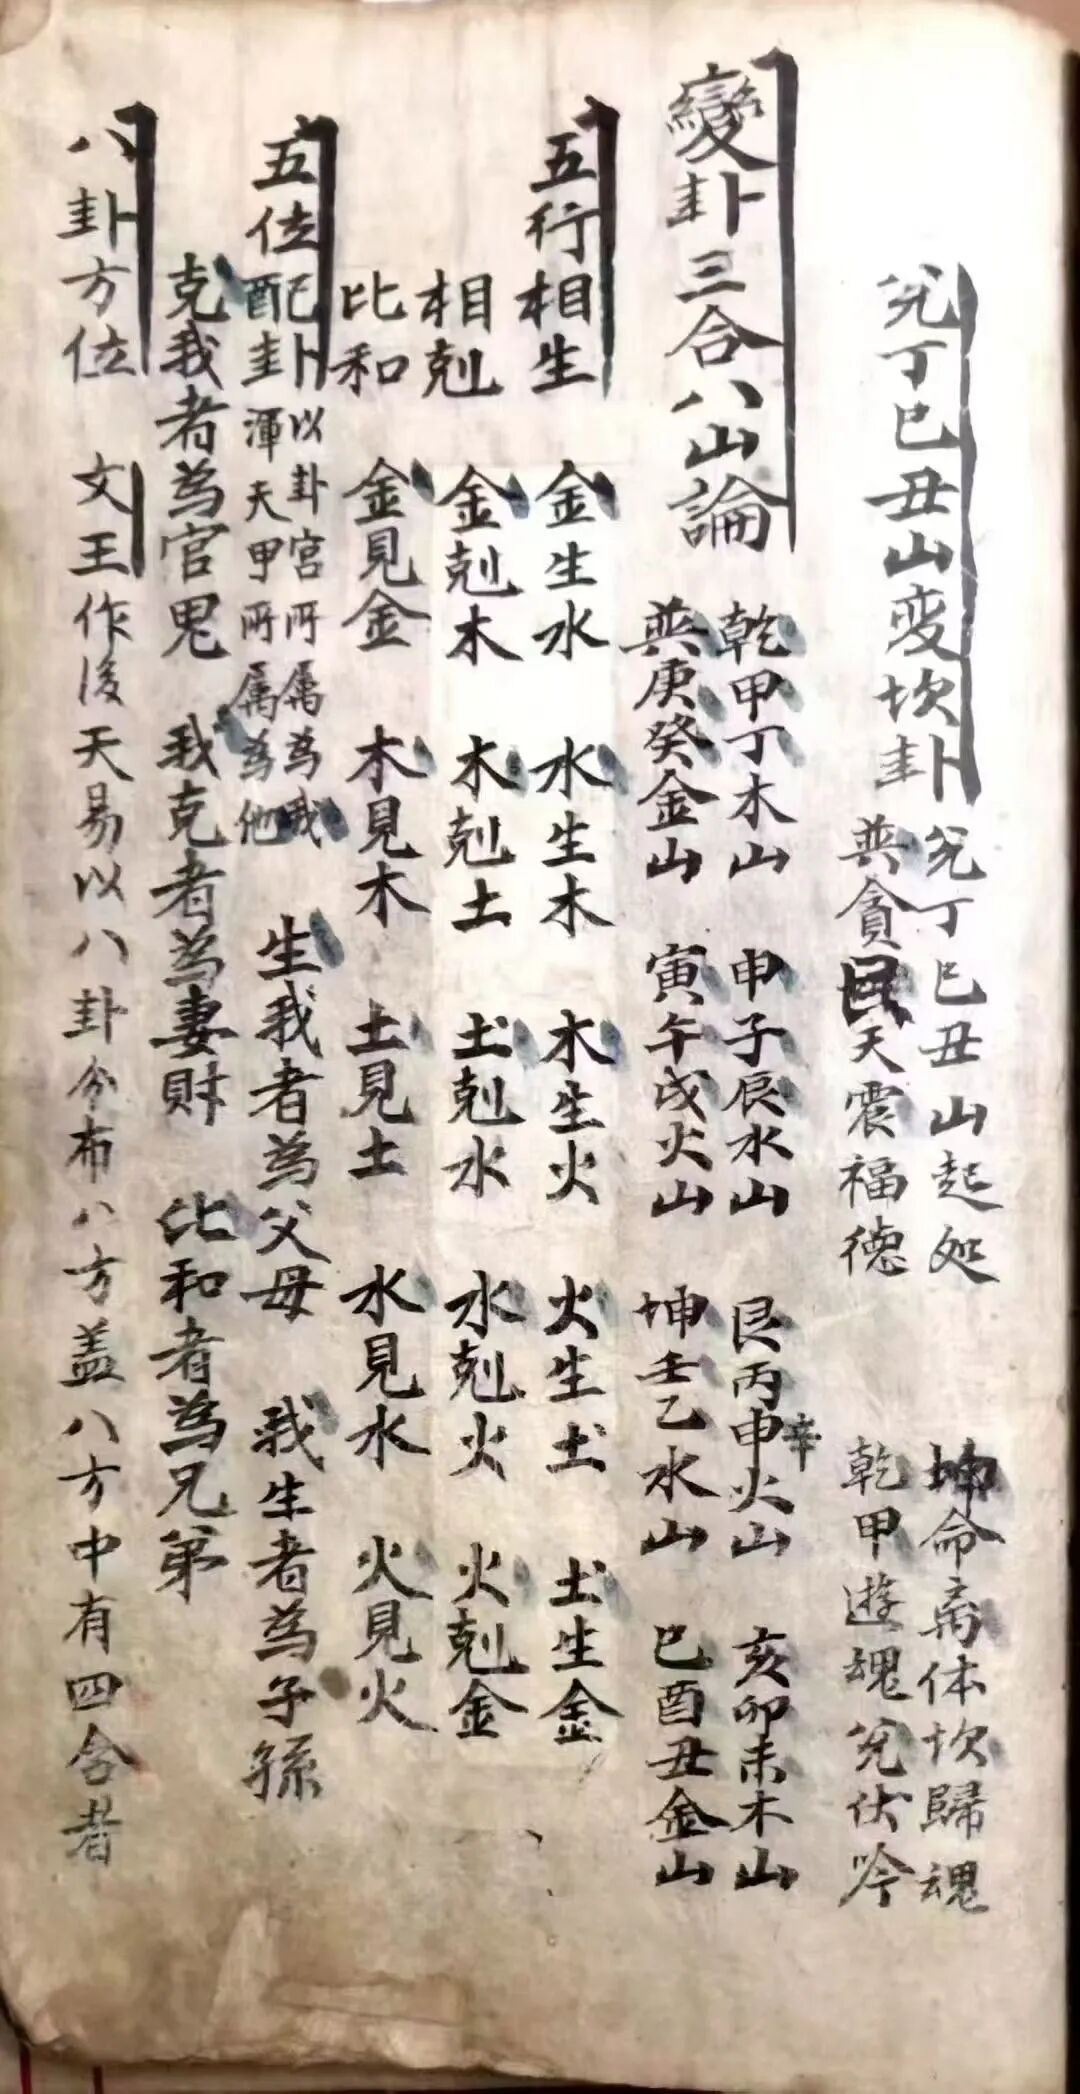 兊丁巳丑山变坎卦 兊丁巳丑山起処 坤命离体坎歸魂
巽貪艮天震福德 乾甲遊魂兊伏吟
變卦三合八山論 乾甲丁木山 申子辰水山 艮丙申火山 亥卯未木山
辛
巽庚癸金山 寅午戌火山 坤壬乙水山 巳酉丑金山
五行相生 金生水 水生木 木生火 火生土 土生金
相剋 金剋木 木剋土 土剋水 水剋火 火剋金
比和 金見金 木見木 土見土 水見水 火見火
五位配卦 以卦宫所属為我
渾天甲所属為他 生我者為父母 我生者為子孫
克我者為官鬼 我克者為妻財 比和者為兄弟
八卦方位 文王作後天易以八卦分布八方盖八方中有四合者